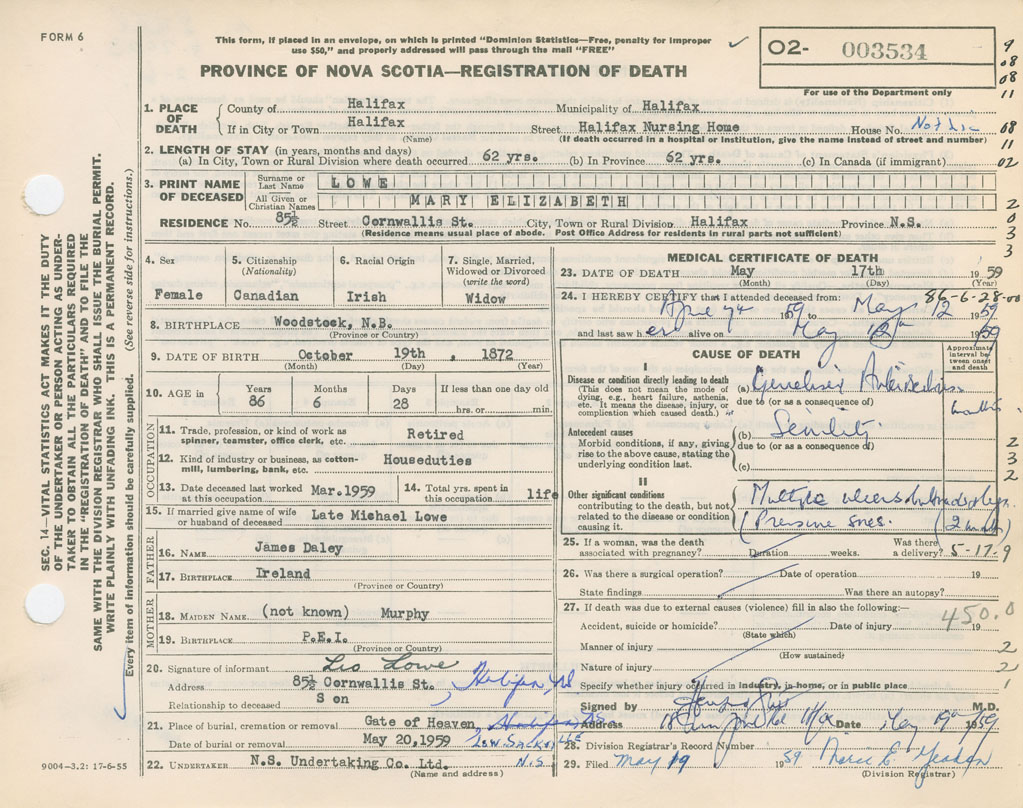 FORM 6
This form, if placed in an envelope, on which is printed "Dominion Statistics—Free, penalty for improper
use $50," and properly addressed will pass through the mail "FREE"
✓
O2- 003534
For use of the Department only
PROVINCE OF NOVA SCOTIA—REGISTRATION OF DEATH
9
08
08
11
08
11
02
2
0
3
3
SEC. 14—VITAL STATISTICS ACT MAKES IT THE DUTY
OF THE UNDERTAKER OR PERSON ACTING AS UNDER-
TAKER TO OBTAIN ALL THE PARTICULARS REQUIRED
IN THE "REGISTRATION OF DEATH" AND TO FILE THE
SAME WITH THE DIVISION REGISTRAR WHO SHALL ISSUE THE BURIAL PERMIT.
WRITE PLAINLY WITH UNFADING INK. THIS IS A PERMANENT RECORD.
Every item of information should be carefully supplied. (See reverse side for instructions.)
1. PLACE OF DEATH
County of Halifax Municipality of Halifax
If in City or Town Halifax Street Halifax Nursing Home House No.
(Name) (If death occurred in a hospital or institution, give the name instead of street and number)
2. LENGTH OF STAY (in years, months and days)
(a) In City, Town or Rural Division where death occurred 62 yrs. (b) In Province 62 yrs. (c) In Canada (if immigrant)
3. PRINT NAME OF DECEASED
Surname or Last Name LOWE
All Given or Christian Names MARY ELIZABETH
RESIDENCE No. 85½ Street Cornwallis St. City, Town or Rural Division Halifax Province N.S.
(Residence means usual place of abode. Post Office Address for residents in rural parts not sufficient)
4. Sex
Female
5. Citizenship (Nationality)
Canadian
6. Racial Origin
Irish
7. Single, Married, Widowed or Divorced (write the word)
Widow
8. BIRTHPLACE Woodstock, N.B.
(Province or Country)
9. DATE OF BIRTH October 19th, 1872
(Month) (Day) (Year)
10. AGE in
Years 86
Months 6
Days 28
If less than one day old
hrs. or min.
OCCUPATION
11. Trade, profession, or kind of work as
spinner, teamster, office clerk, etc. Retired
12. Kind of industry or business, as cotton-
mill, lumbering, bank, etc. Houseduties
13. Date deceased last worked
at this occupation Mar.1959
14. Total yrs. spent in
this occupation life
15. If married give name of wife
or husband of deceased Late Michael Lowe
FATHER
16. NAME James Daley
17. BIRTHPLACE Ireland
(Province or Country)
MOTHER
18. MAIDEN NAME (not known) Murphy
19. BIRTHPLACE P.E.I.
(Province or Country)
20. Signature of informant Leo Lowe
Address 85½ Cornwallis St. Halifax NS
Relationship to deceased S on
21. Place of burial, cremation or removal Gate of Heaven, Halifax, N.S.
Date of burial or removal May 20,1959 Low. Sackville N.S.
22. UNDERTAKER N.S. Undertaking Co. Ltd.
(Name and address)
9004-3.2: 17-6-55
MEDICAL CERTIFICATE OF DEATH
23. DATE OF DEATH May 17th 1959
(Month) (Day) (Year)
86-6-28-00
24. I HEREBY CERTIFY that I attended deceased from:
April 1959 to May 12 1959
and last saw her alive on May 12th 1959
CAUSE OF DEATH
Approximate interval between onset and death
I
Disease or condition directly leading to death
(This does not mean the mode of
dying, e.g., heart failure, asthenia,
etc. It means the disease, injury, or
complication which caused death.)
(a)
due to (or as a consequence of)
Antecedent causes
Morbid conditions, if any, giving
rise to the above cause, stating the
underlying condition last.
(b) Senility
due to (or as a consequence of)
(c)
II
Other significant conditions
contributing to the death, but not
related to the disease or condition
causing it.
Multiple ulcers
(Pressure sores.
2
3
2
25. If a woman, was the death
associated with pregnancy? Duration weeks. Was there
a delivery? 5-17-9
26. Was there a surgical operation? Date of operation 19
State findings Was there an autopsy?
27. If death was due to external causes (violence) fill in also the following:—
450.0
Accident, suicide or homicide? Date of injury 19
(State which)
Manner of injury 2
(How sustained)
Nature of injury 2
Specify whether injury occurred in industry, in home, or in public place 1
Signed by M.D.
Address Date May 19th 1959
28. Division Registrar's Record Number
29. Filed May 19 1959
(Division Registrar)